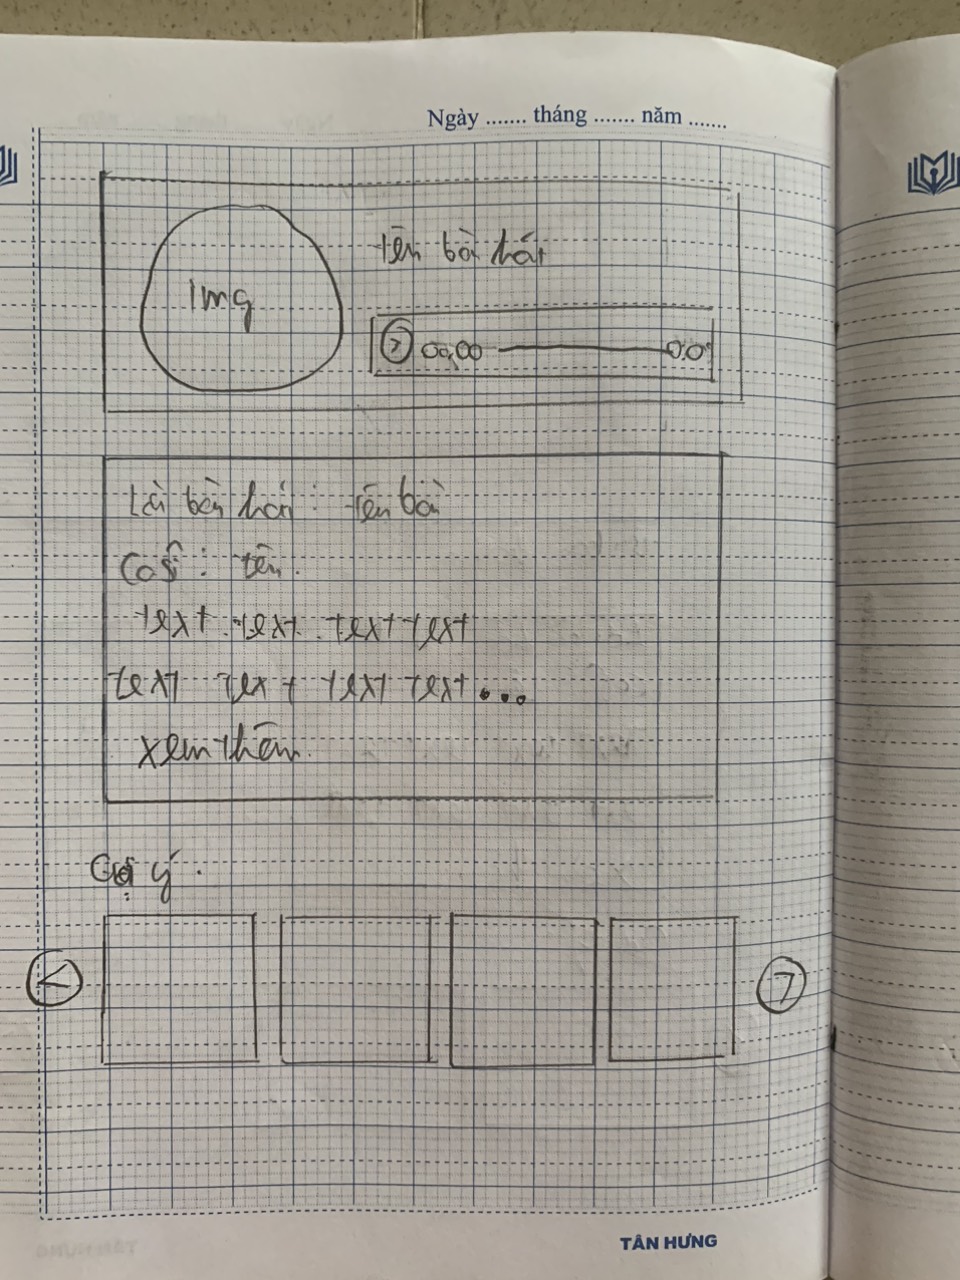 Ngày ....... tháng ....... năm .......
tên bài hát
Img
> 00,00 0.0
Lời bài hát : tên bài
Ca sĩ : tên.
text text text text
text text text text...
xem thêm.
Gợi ý.
< >
TÂN HƯNG